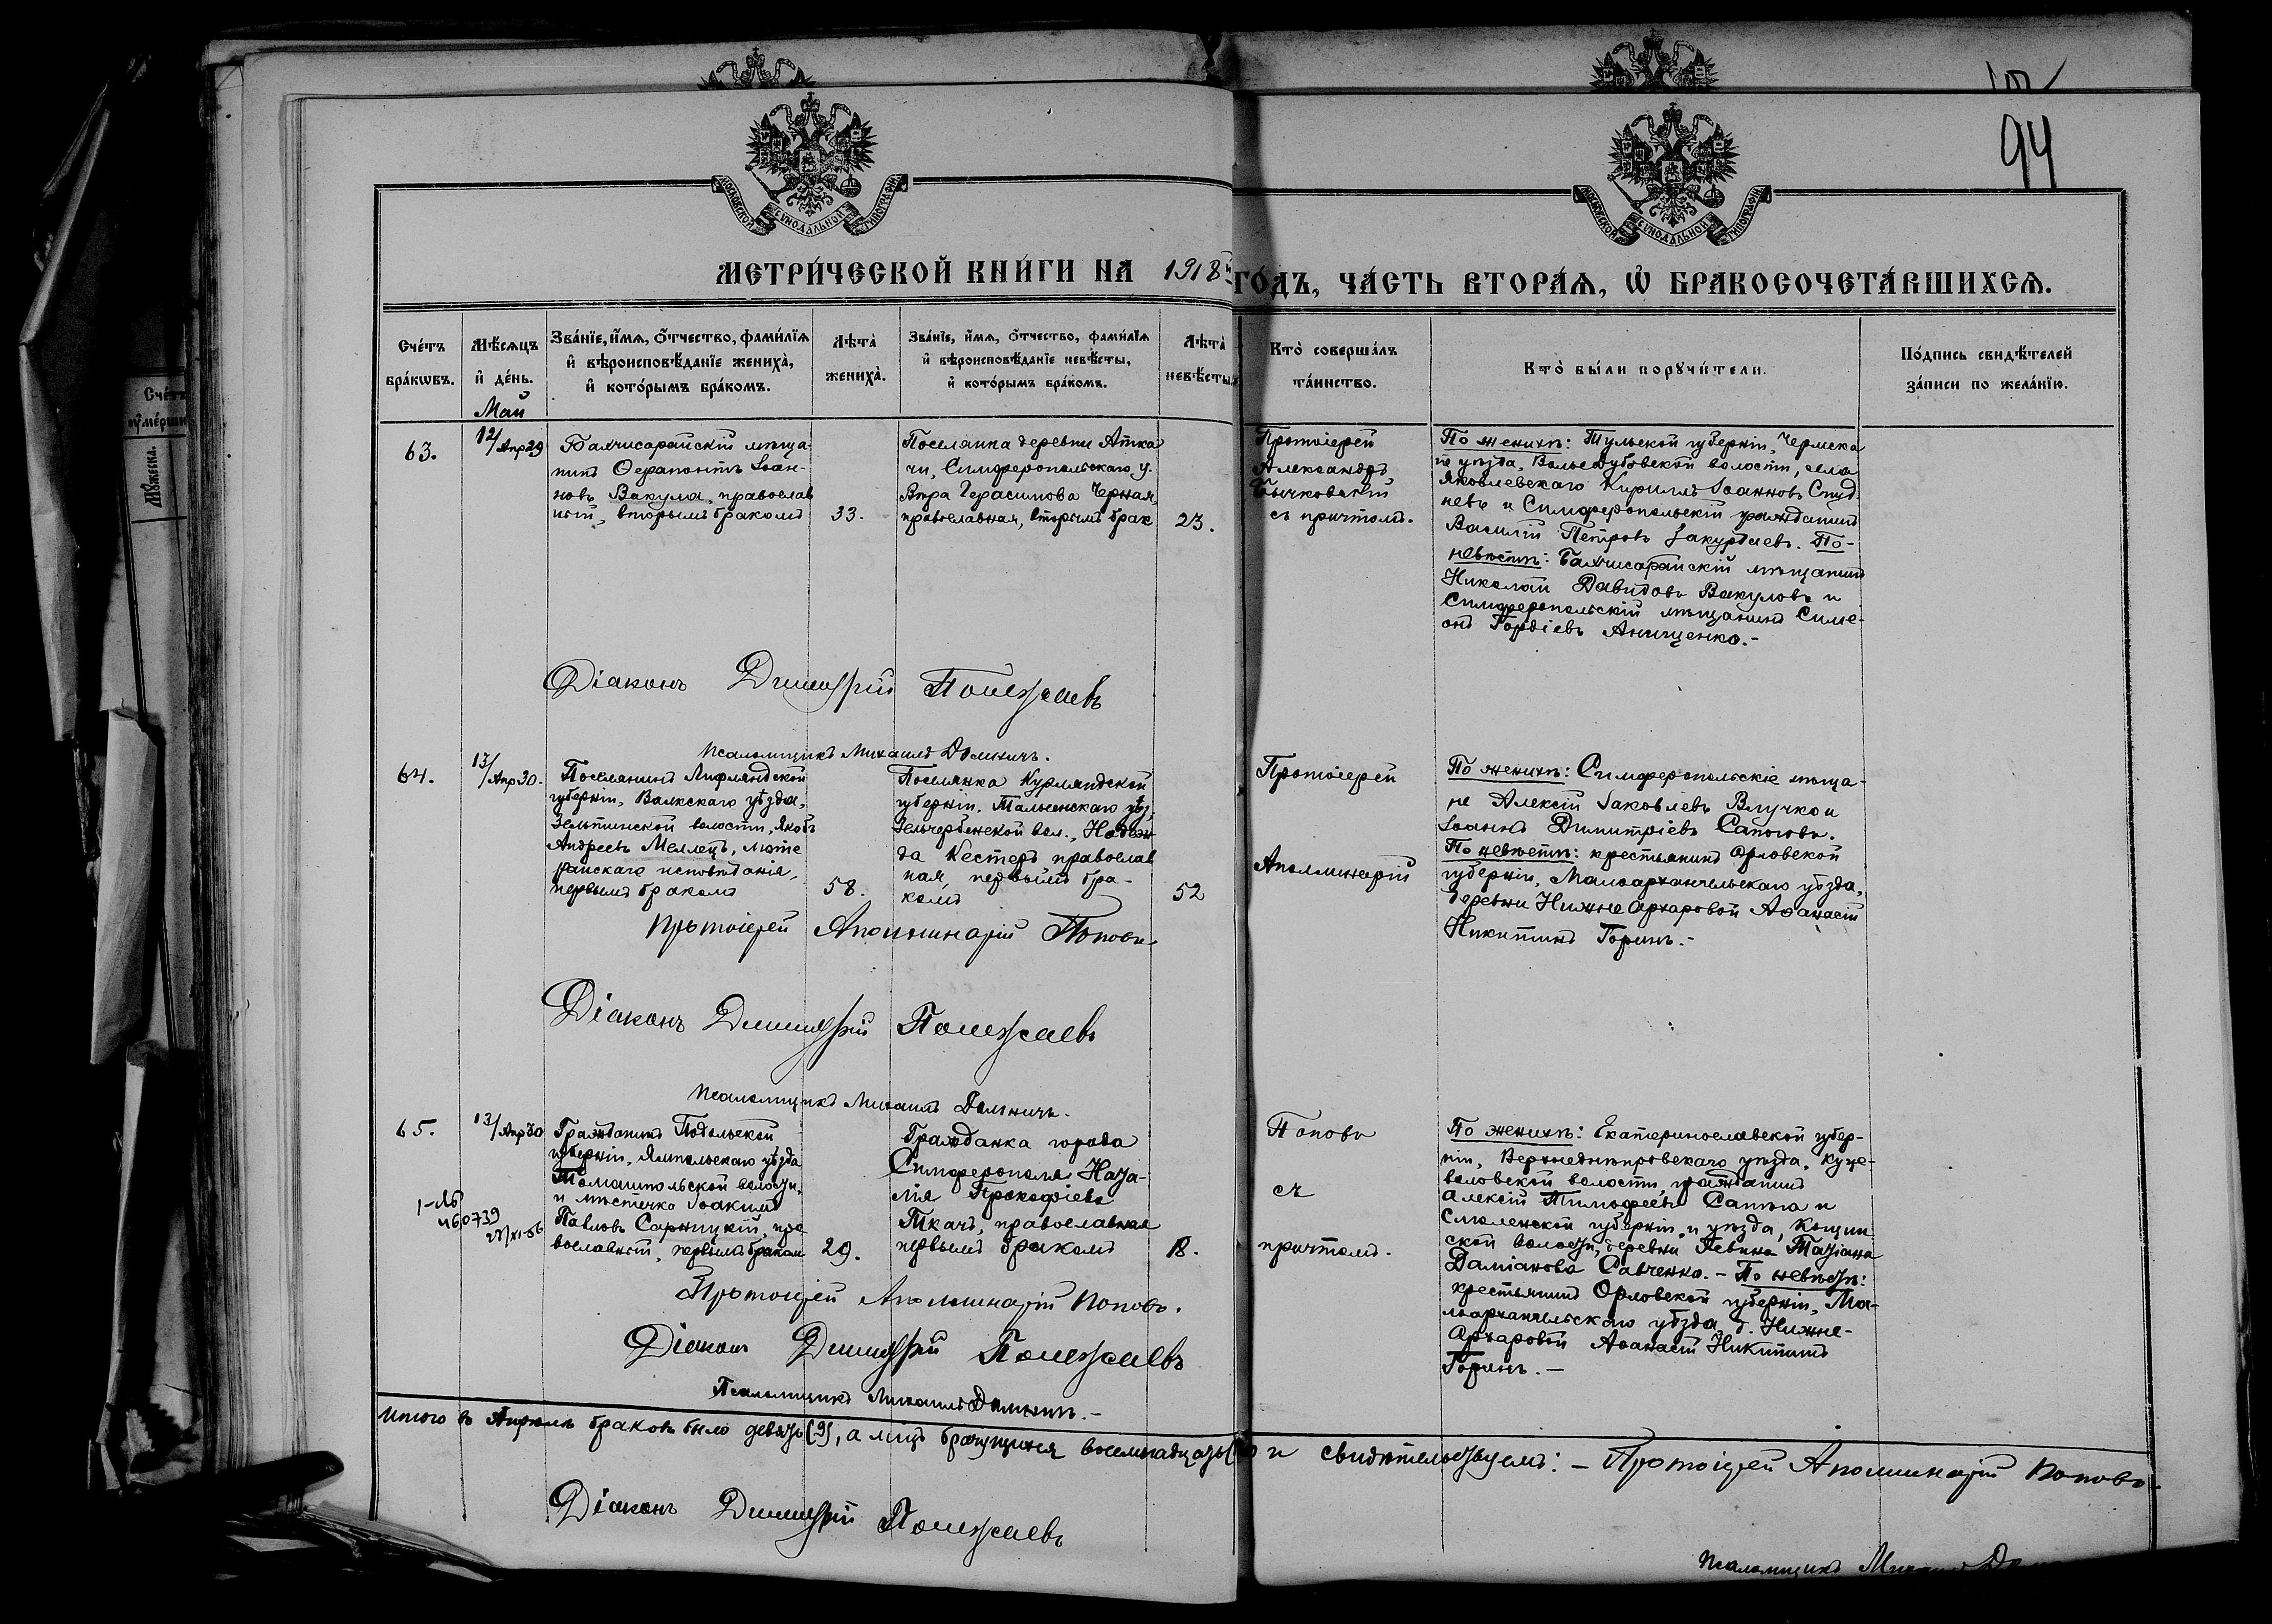 94
МОСКОВСКОЙ СѴНОДАЛЬНОЙ ТИПОГРАФІИ
МОСКОВСКОЙ СѴНОДАЛЬНОЙ ТИПОГРАФІИ
МЕТРИ́ЧЕСКОЙ КНИ́ГИ НА 1918й ГО́ДЪ, ЧА́СТЬ ВТОРА́Ѧ, Ѡ҆ БРАКОСОЧЕТА́ВШИХСѦ.
Сче́тъ бра́кѡвъ.
Мѣ́сѧцъ и҆ де́нь.
Май
Зва́нїе, и҆́мѧ, ѻ҆́тчество, фами́лїѧ
и҆ вѣроисповѣ́данїе жениха̀,
и҆ кото́рымъ бра́комъ.
Лѣта̀ жениха̀.
Зва́нїе, и҆́мѧ, ѻ҆́тчество, фами́лїѧ
и҆ вѣроисповѣ́данїе невѣ́сты,
и҆ кото́рымъ бра́комъ.
Лѣта̀ невѣ́сты.
Кто̀ соверша́лъ
та́инство.
Кто̀ бы́ли порꙋчи́тели.
По́дпись свидѣ́телей
за́писи по жела́нїю.
Сче́тъ
Мꙋ́жеска.
63.
12/Апр 29
Бахчисарайскій мѣща-
нинъ Ѳерапонтъ Іоан-
новъ Вакула, православ
ный, вторымъ бракомъ
33.
Поселянка деревни Атка
чи, Симферопольскаго у.
Вѣра Герасимова Черная,
православная, вторымъ брак
23.
Протоіерей
Александръ
Бычковскій
съ причтомъ.
По женихѣ: Тульской губерніи, Чернска
го уѣзда, Вольедубовской волости, села
Яковлевскаго Кириллъ Іоанновъ Студ-
невъ и Симферопольскій гражданинъ
Василій Петровъ Закурдаевъ. По-
невѣстѣ: Бахчисарайскій мѣщанинъ
Николай Давидовъ Вакуловъ и
Симферопольскій мѣщанинъ Симе-
онъ Гордіевъ Анищенко.-
Діаконъ Димитрій Полежаевъ
Псаломщикъ Михаилъ Долничъ.
64.
13/Апр 30.
Поселянинъ Лифляндской
губерніи, Валкскаго уѣзда,
волости, Якобъ
Андреевъ Меллецъ, люте
ранскаго исповѣданія,
первымъ бракомъ
58.
Поселянка Курляндской
губерніи, Тальсенскаго уѣз,
вол., Надеж
да Нестеръ православ
ная, первымъ бра-
комъ
52
Протоіерей
Аполлинарій
По женихѣ: Симферопольскіе мѣща-
не Алексій Іаковлевъ Влучко и
Іоаннъ Димитріевъ Сапоговъ.
По невѣстѣ: крестьянинъ Орловской
губерніи, Малоархангельскаго уѣзда,
деревни Нижне Архаровой Аѳанасій
Никитинъ Горинъ.-
Протоіерей Аполлинарій Поповъ
Діаконъ Димитрій Полежаевъ
Псаломщикъ Михаилъ Долничъ.
65.
13/Апр 30
Гражданинъ Подольской
губерніи, Ямпольскаго уѣзда
Томашпольской волости,
и мѣстечка Іоакимъ
Павловъ Сарницкій, пра
вославный, первымъ бракомъ
29.
1-ЯБ
460739
Гражданка города
Симферополя Ната-
лія Прокофіева
Ткачъ, православная
первымъ бракомъ
18.
Поповъ
съ
причтомъ.
По женихѣ: Екатеринославской губер-
ніи, Верхнеднѣпровскаго уѣзда, Куце-
воловской волости, гражданинъ
Алексій Тимофеевъ Сапѣга и
Смоленской губерніи, и уѣзда, Кощин
ской волости, деревни Татіана
Даміанова Савченко.- По невѣстѣ:
крестьянинъ Орловской губерніи, Ма-
лоархангельскаго уѣзда, д. Нижне-
Архаровой Аѳанасій Никитинъ
Горинъ.-
Протоіерей Аполлинарій Поповъ.
Діаконъ Димитрій Полежаевъ
Псаломщикъ Михаилъ Долничъ.-
Итого въ Апрелѣ браковъ было девять (9), а лицъ брачущихся восемнадцать и свидѣтельствуемъ: - Протоіерей Аполлинарій Поповъ.
Діаконъ Димитрій Полежаевъ
Псаломщикъ Михаилъ